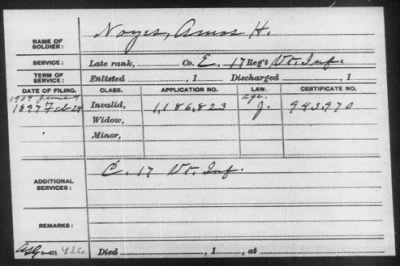 NAME OF SOLDIER: Noyes, Amos H.
SERVICE: Late rank, Co. E. 17 Reg't Vt. Inf.
TERM OF SERVICE: Enlisted , 1 Discharged , 1
DATE OF FILING. CLASS. APPLICATION NO. LAW. CERTIFICATE NO.
1897 Feb 24 Invalid, 1,186,823 J. 993,970
Widow,
Minor,
ADDITIONAL SERVICES: C. 17 Vt. Inf.
REMARKS:
Died , 1 , at